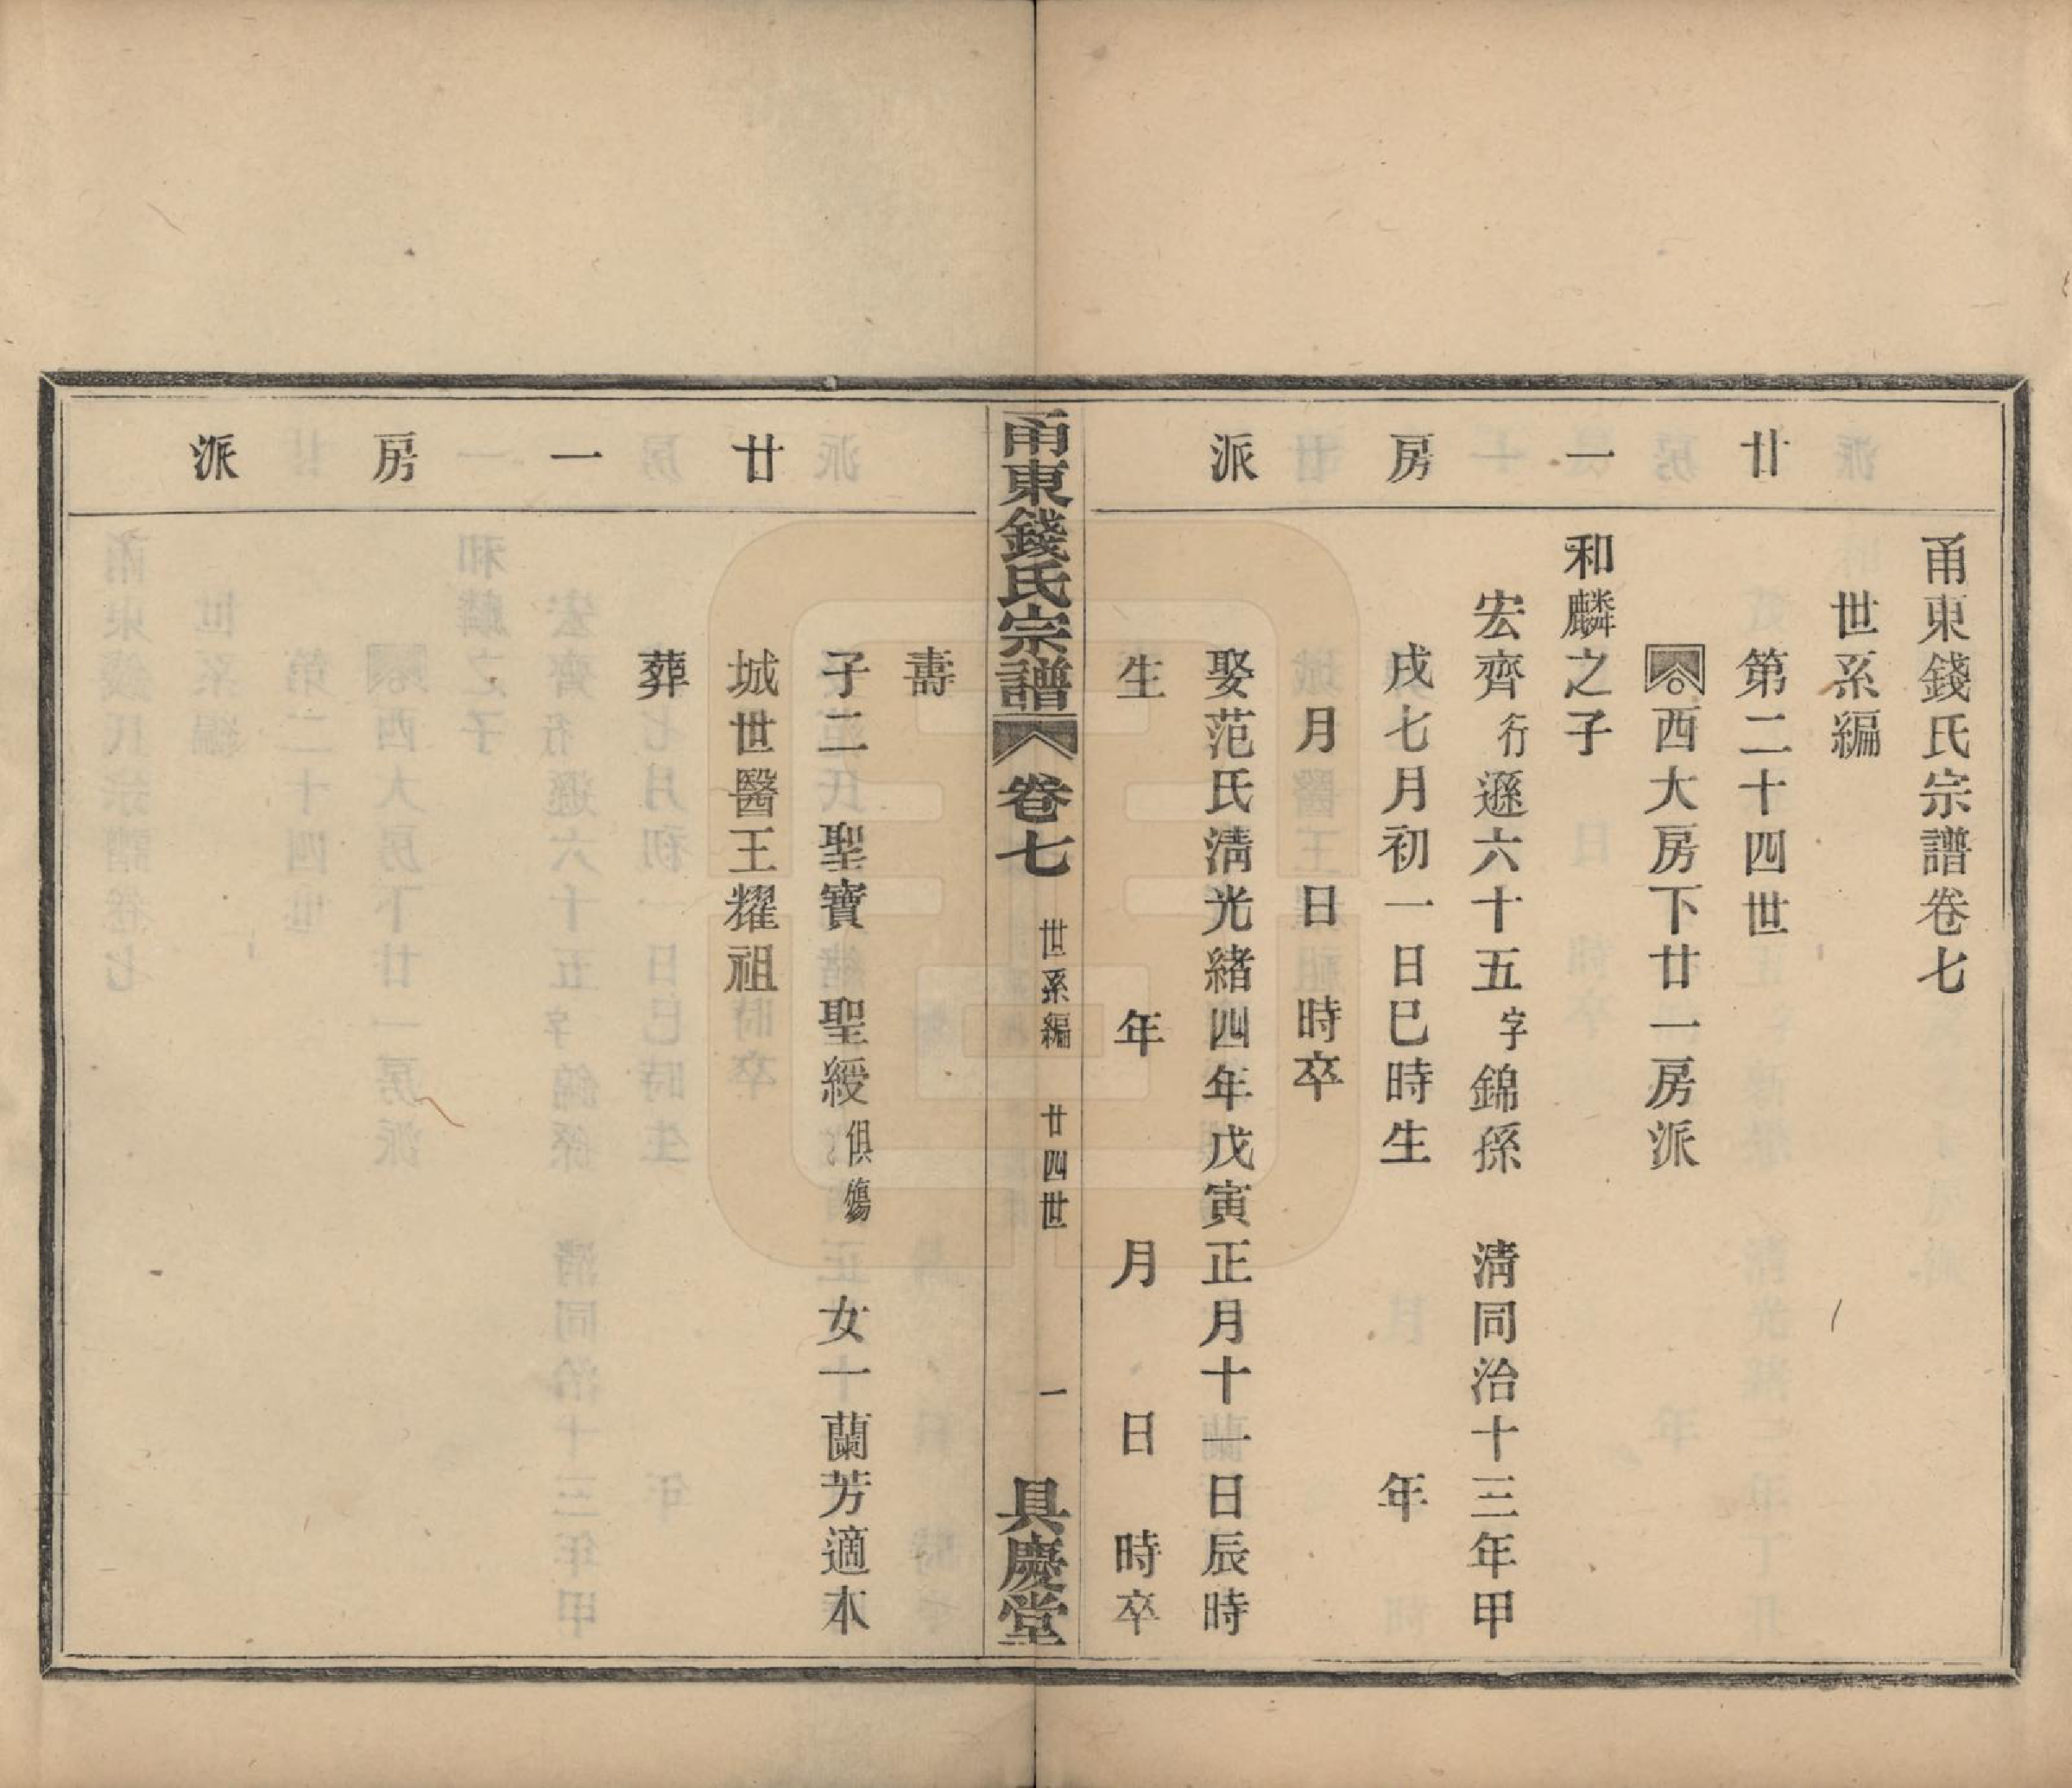 廿一房派
甬東錢氏宗譜卷七
世系編
第二十四世
西大房下廿一房派
和麟之子
宏齊行遜六十五字錦孫 清同治十三年甲
戌七月初一日巳時生 年
月 日 時卒
娶范氏清光緒四年戊寅正月十一日辰時
生 年 月 日 時卒
甬東錢氏宗譜 卷七 世系編 廿四世 一 具慶堂
廿一房派
壽
子二 聖寶 聖綬俱殤 女一蘭芳適本
城世醫王耀祖
葬